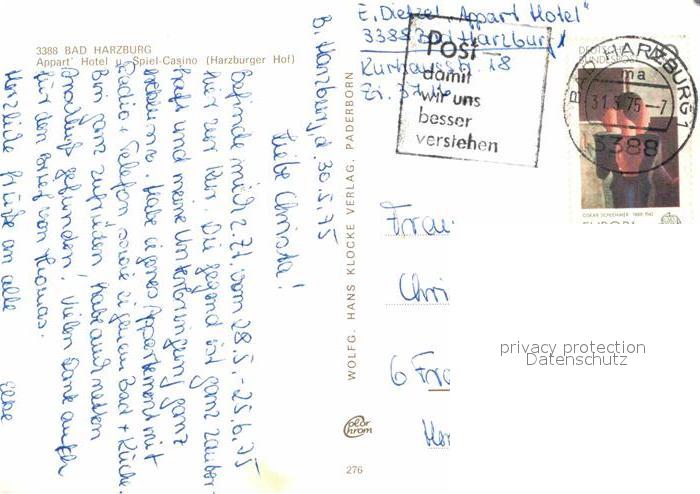 3388 BAD HARZBURG
Appart' Hotel u. Spiel-Casino (Harzburger Hof)
B. Harzburg, d. 30.5.75
Liebe Christa!
Befinde mich z.Zt. vom 28.5.-25.6.75
hier zur Kur. Die Gegend ist ganz zauber-
haft und meine Unterbringung ganz
prima. Habe eigenes Appartement mit
Radio + Telefon sowie eigenem Bad + Küche.
Bin ganz zufrieden, habe auch netten
Anschluß gefunden. Vielen Dank auch
für den Brief von Thomas.
Herzliche Grüße an alle
Elbe
WOLFG. HANS KLOCKE VERLAG, PADERBORN
color chrom
276
E. Dietzel "Appart Hotel"
3388 Bad Harzburg 1
Kurhausstr. 18
Zi.
Post
damit
wir uns
besser
verstehen
BAD HARZBURG 1
ma
31.5.75-7
3388
DEUTSCHE
BUNDESPOST
OSKAR SCHLEMMER 1888-1943
EUROPA
Frau
Chri
6 Fra
privacy protection
Datenschutz